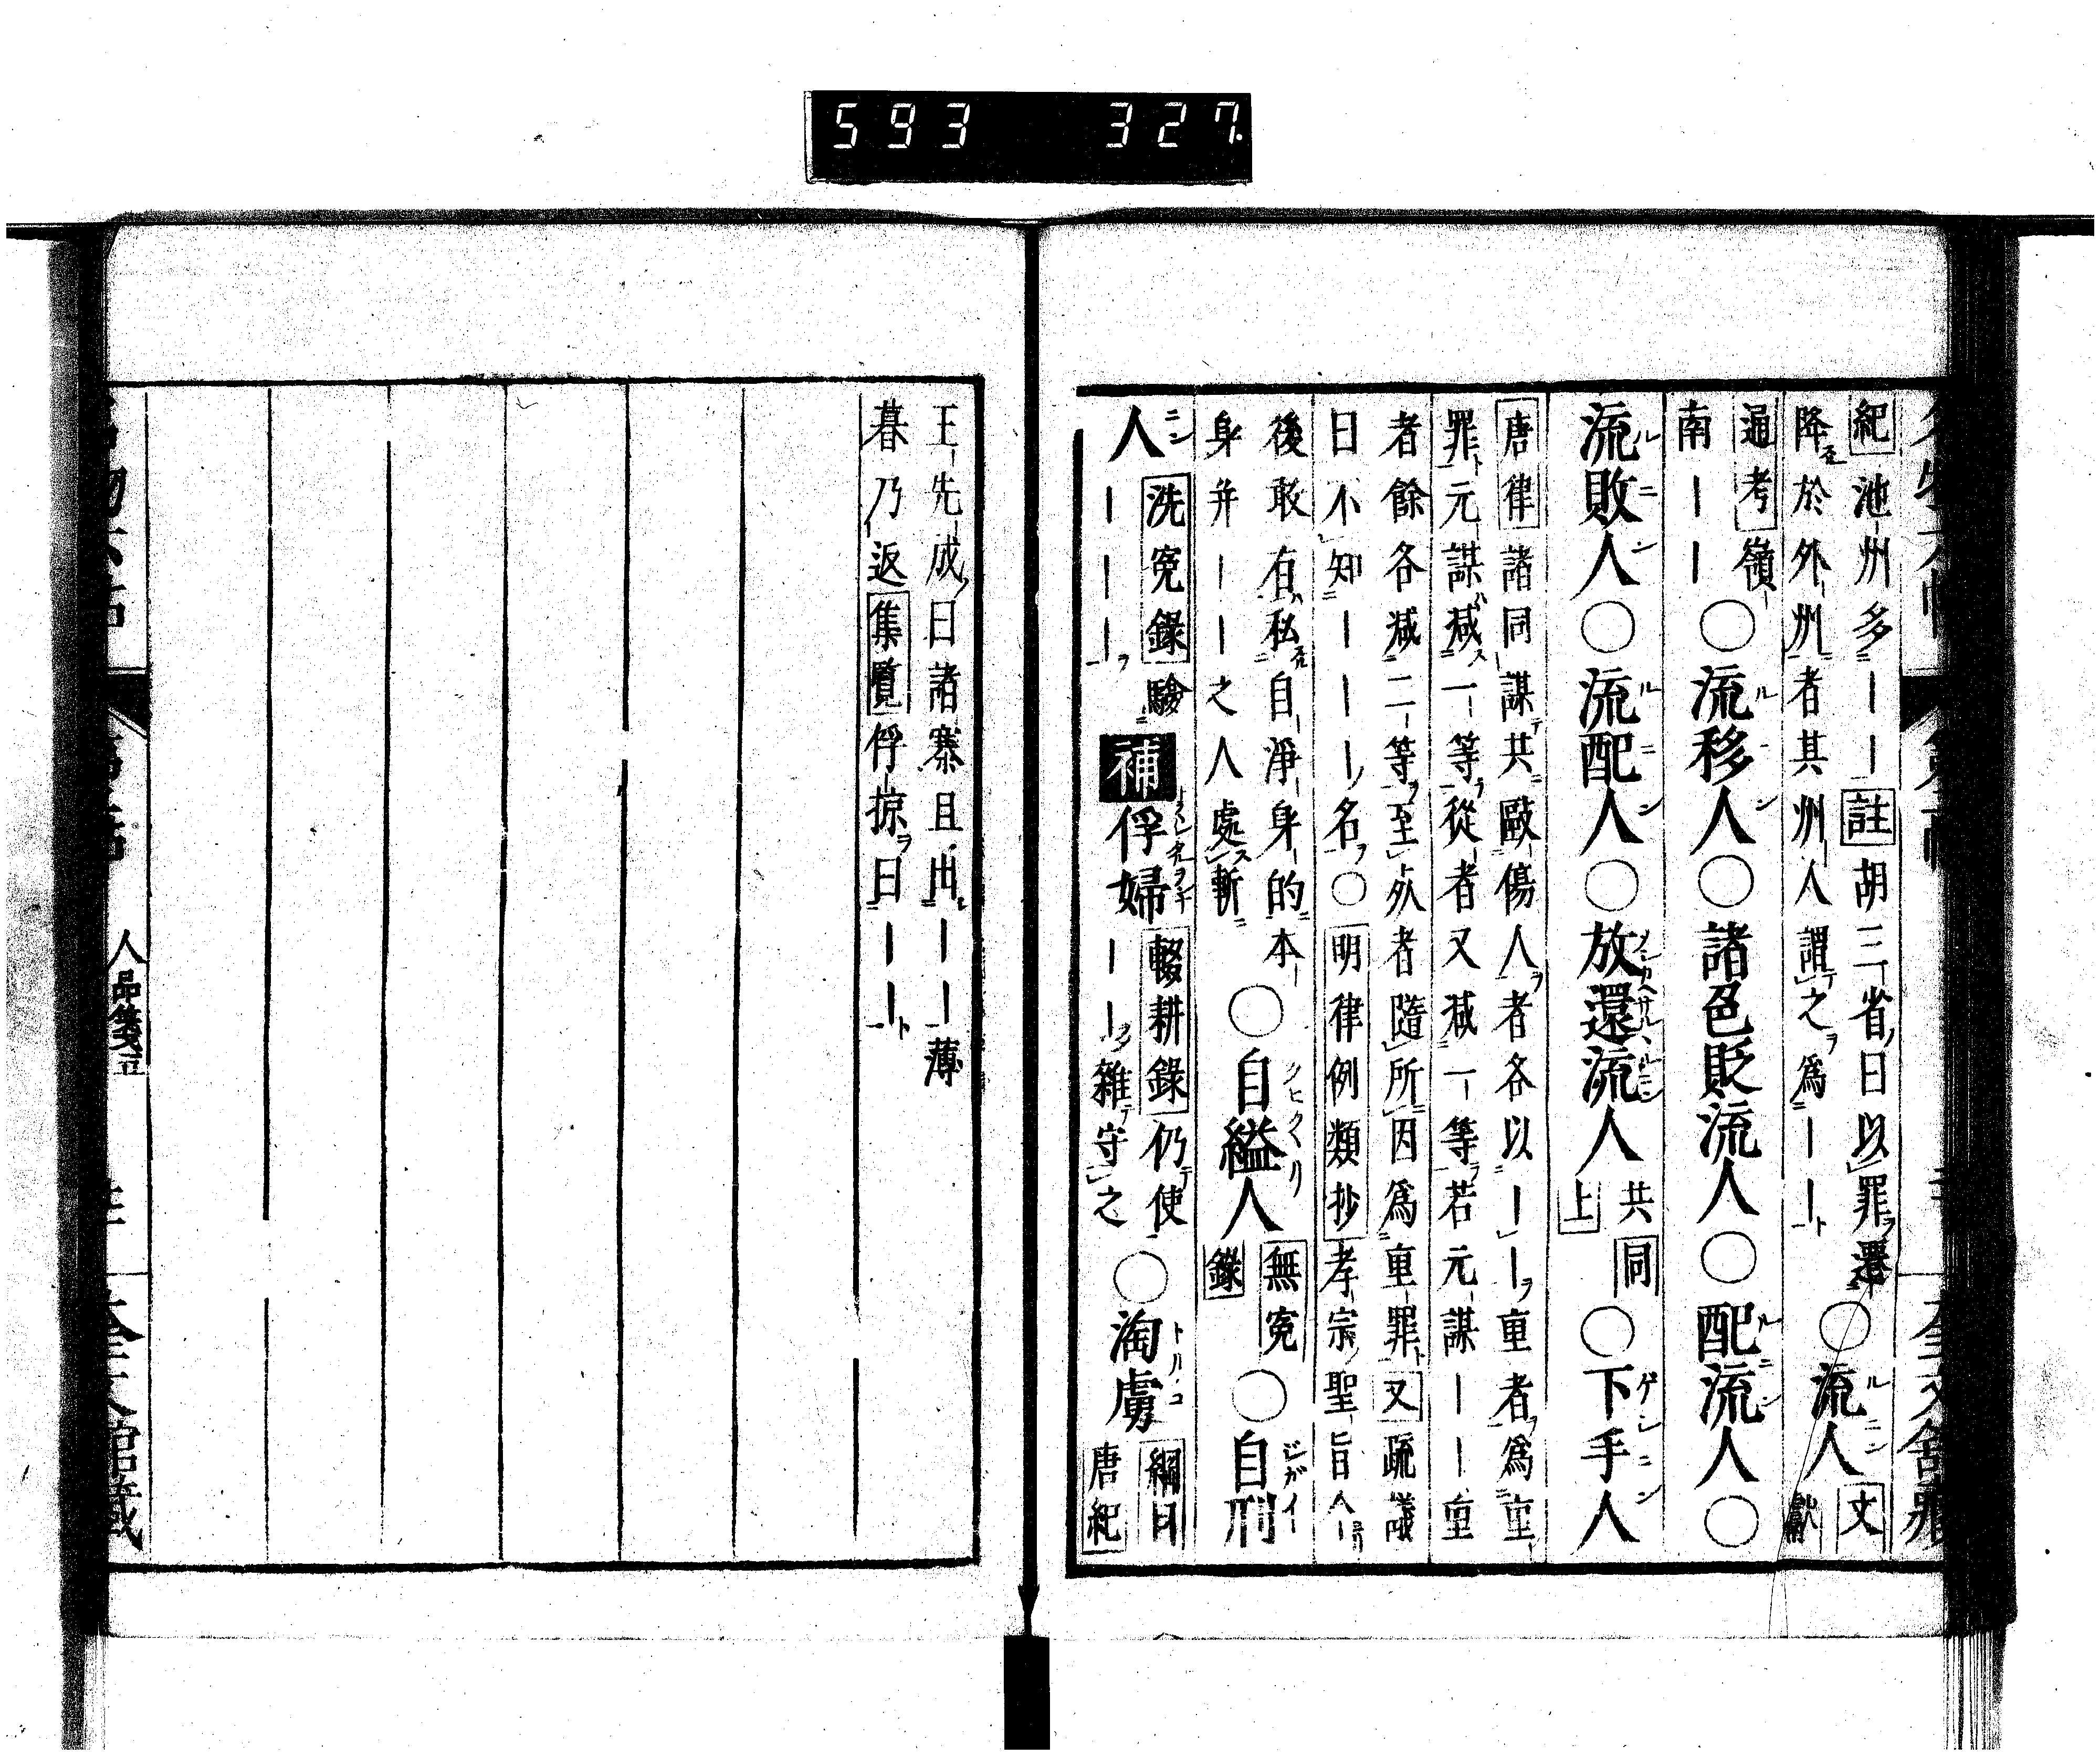 593 327
紀池州多｜｜註胡三省曰以罪遷
降於外州者其州人謂之爲｜｜
○流人文
獻
通考嶺
南｜｜○流移人○諸色貶流人○配流人○
流敗人○流配人○放還流人共同
上○下手人
唐律諸同謀共毆傷人者各以｜｜重者爲重
罪元謀減一等從者又減一等若元謀｜｜重
者餘各減二等至死者隨所因爲重罪又疏議
曰不知｜｜｜名○明律例類抄孝宗聖旨今
後敢有私自淨身的本
身幷｜｜之人處斬
○自縊人無寃
錄○自刑
人洗寃錄驗
｜｜｜補俘婦輟耕錄仍使
｜｜雜守之○淘虜綱目
唐紀
王先成曰諸寨且出｜｜薄
暮乃返集覽俘掠曰｜｜
人品箋